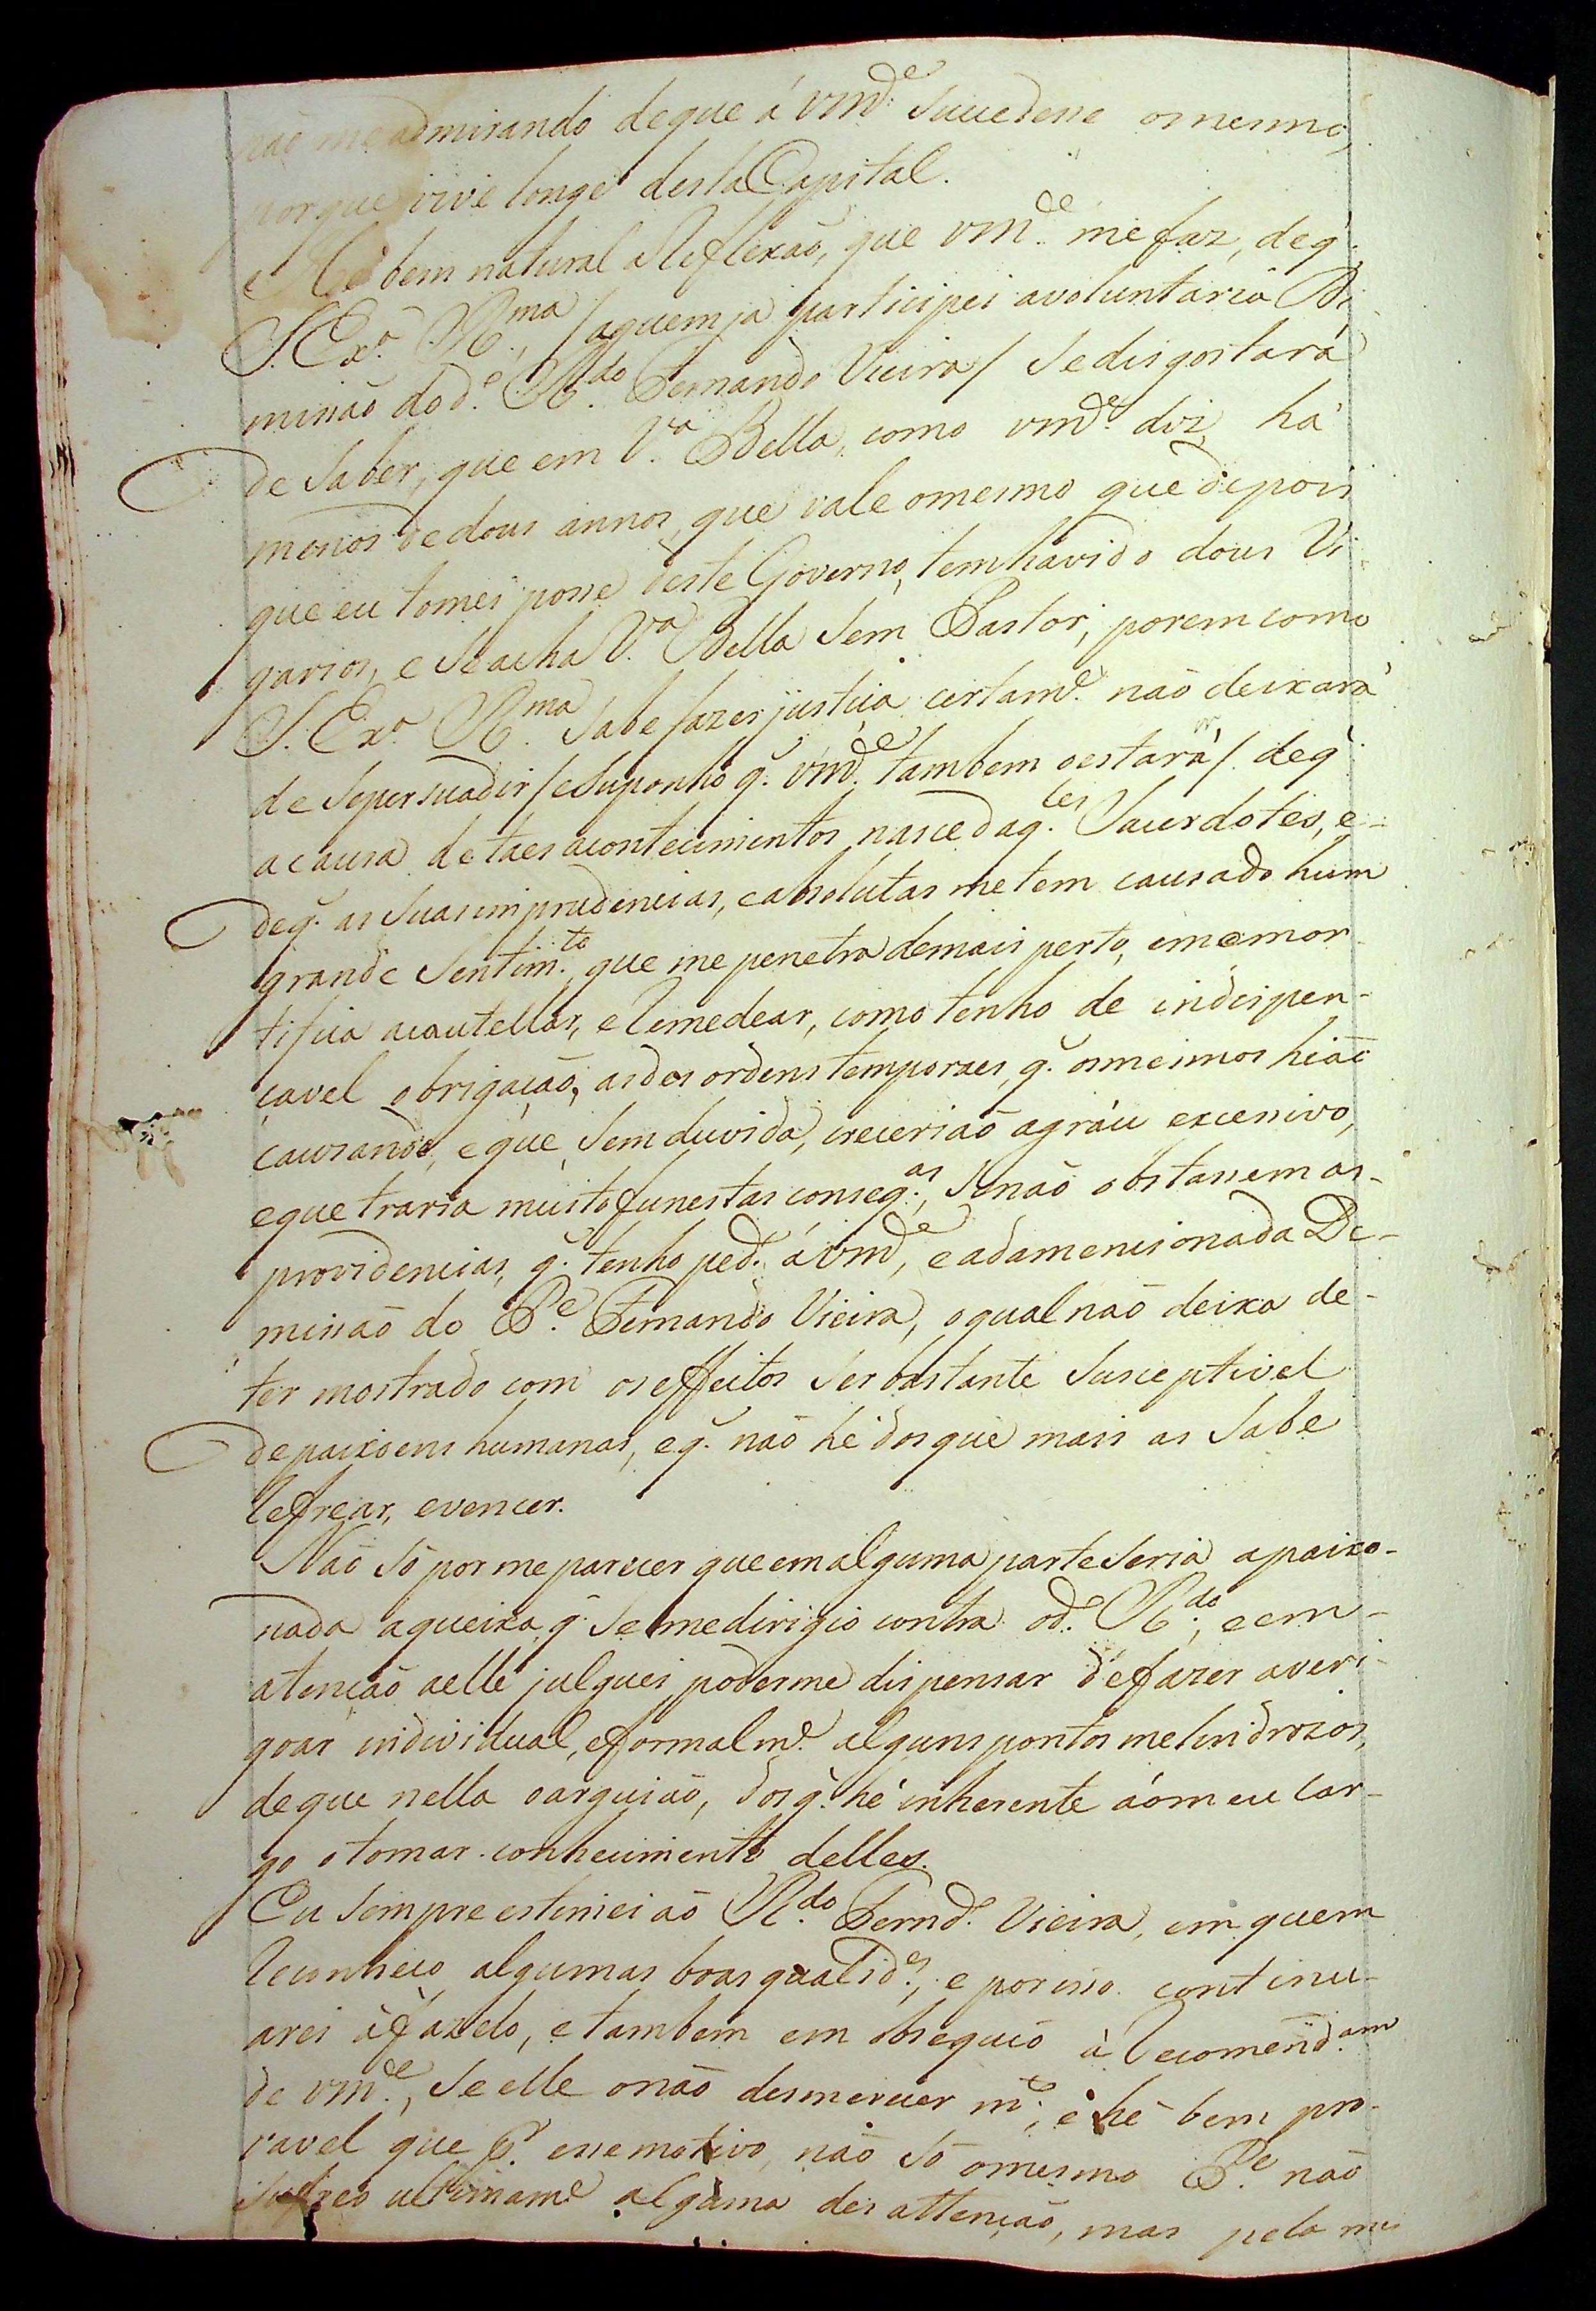 não me admirando deque á Vm.de Sucedesse omesmo,
porque vive longe desta Capital.
Hé bem natural a Refflexão, que Vm.de me faz, deq.
S. Ex.a R.ma /aquem já participei avoluntaria De
missão dod.o R.do Fernando Vieira/ Sedisgostará
de Saber, que em V.a Bella, como vm.de diz, há
menos dedous annos, que vale omesmo que depois
que eu tomei posse deste Governo, temhavido dous Vi
garios, e Seacha V.a Bella Sem Pastor; porem como
S. Ex.a R.ma Sabe fazer justiça certam.e não deixará
de Sepersuadir /eSuponho q. Vm.de tambem oestará/ deq.
acausa detaes acontecimentos nasce daq.les Sacerdotes, e-
deq. as Suas imprudencias, eabsolutas me tem causado hum
grande Sentim.to, que me penetra demais perto, emamor
tifica acautellar, eRemedear, como tenho de indispen-
çavel obrigação, asdesordens temporaes, q. osmesmos hião
causando, eque, Sem duvida, crecerião agráu excessivo,
eque traria muito funestas conseq.as, Senão obstassem as-
providencias, q. tenho ped.o á Vm.de, e adamencionada De-
missão do P.e Fernando Vieira, oqual não deixa de-
ter mostrado com os effeitos Ser bastante Susceptivel
depaixoens humanas, eq. não hé dosque mais as Sabe
Refrear, evencer.
Não Só por me parecer que em alguma parte Seria apaixo-
nada aqueixa, q. Se me dirigio contra od.o R.do, eem-
atenção aelle julguei poderme dispensar defazer averi-
goar individual, eformalm.e alguns pontos melindrozos,
deque nella oarguião, dos q. hé inherente áomeu Car-
go otomar conhecimento delles.
Eu Sempre estimei áo R.do Fernd.o Vieira, em quem
Reconheco algumas boas qualid.es, e porisso continu-
arei áfazelo, etambem em obsequio à Recomend.am
de Vm.de, Se elle onão desmerecer m.to; e hé bem pro-
vavel que p.r esse motivo, não Só omesmo P.e não
Sufreo ultimam.e alguma desattenção, mas pelo